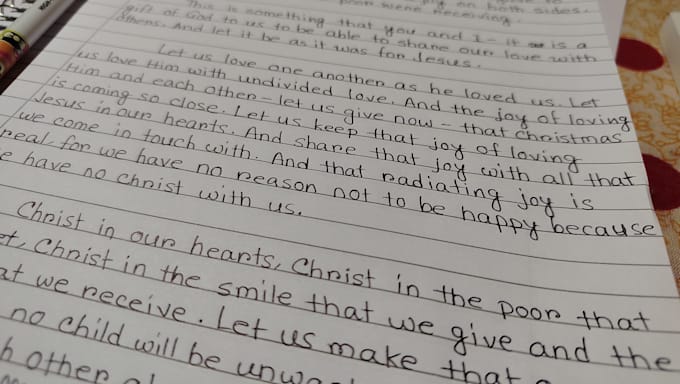 on both sides.
poor were receiving.
This is something that you and I - it is a
gift of God to us to be able to share our love with
others. And let it be as it was for Jesus.
Let us love one another as he loved us. Let
us love Him with undivided love. And the joy of loving
Him and each other - let us give now - that Christmas
is coming so close. Let us keep that joy of loving
Jesus in our hearts. And share that joy with all that
we come in touch with. And that radiating joy is
real, for we have no reason not to be happy because
e have no Christ with us.
Christ in our hearts, Christ in the poor that
et, Christ in the smile that we give and the
at we receive. Let us make that
no child will be unwa
h other